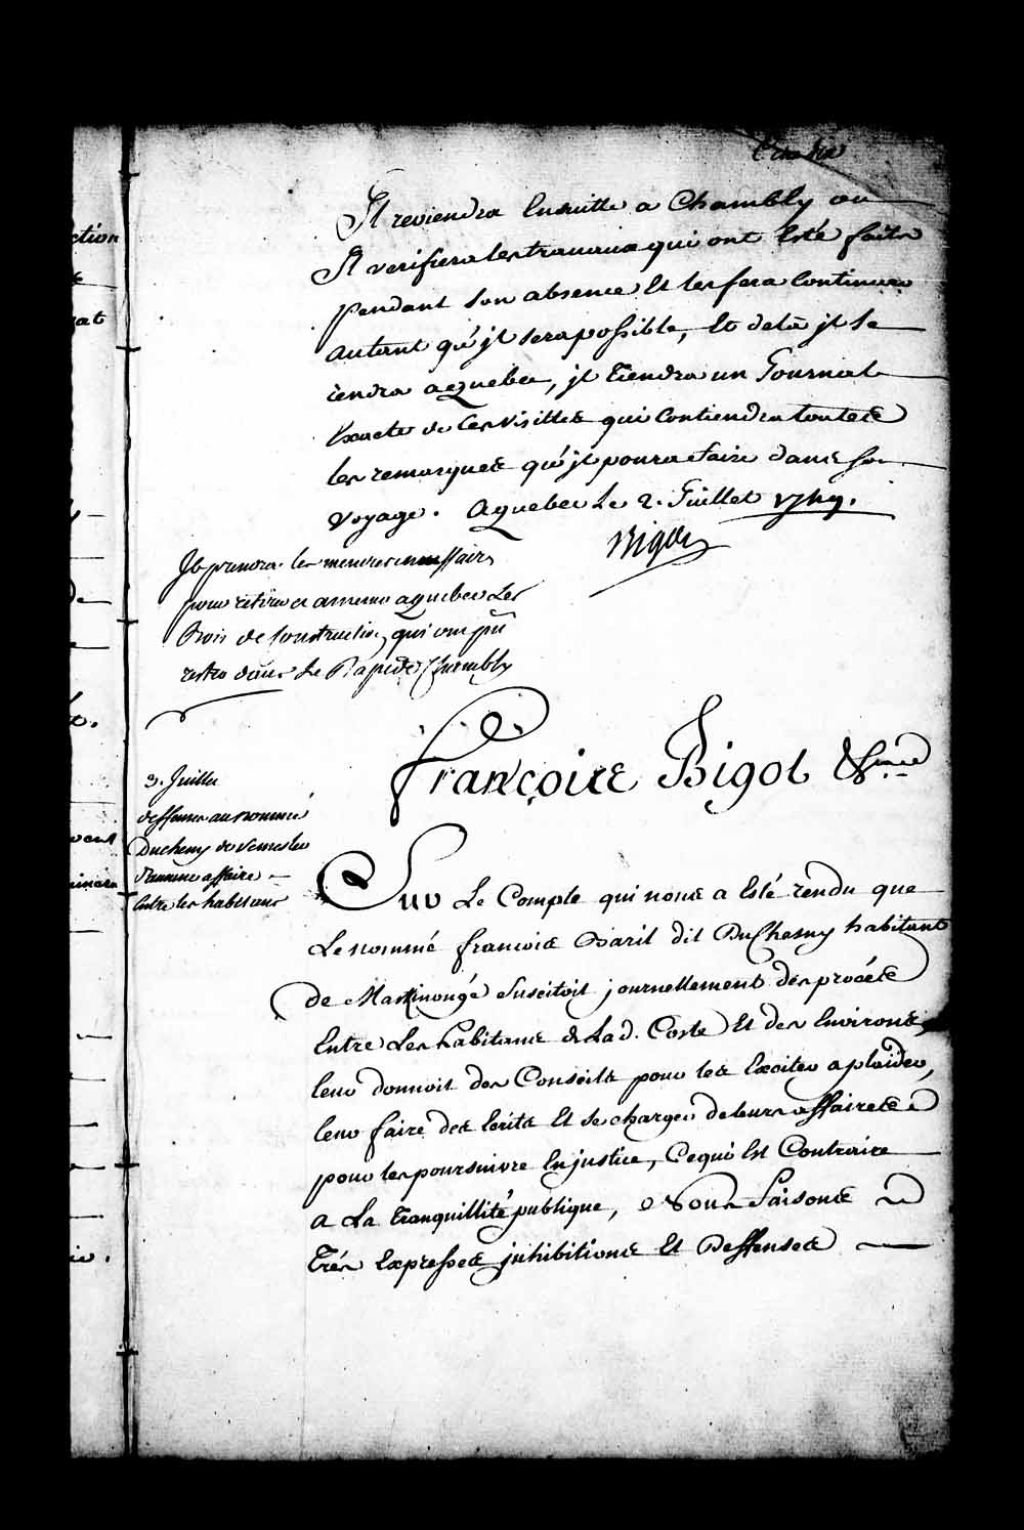 Il reviendra Ensuitte a Chambly ou
Il verifiera les travaux qui ont Esté faits
pendant son absence Et les fera Continuer
autant qu'jl sera possible, Et dela jl se
rendra aquebec, jl tiendra un Journal
Exacte de Ces Visittes qui Contiendra toutes
les remarques qu'jl poura faire dans son
voyage. aquebec Le 2. Juillet 1749.
Bigot
Il prendra les mesures necessaires
pour retirer et amener aquebec Les
Bois de Construction qui ont pû
rester dans Le Rapide Chambly
François Bigot &
3. Juillet
deffenses au nommé
Duchesny de se mesler
d'aucune affaire
Entre les habitans
Sur Le Compte qui nous a Esté rendu que
Le nommé francois Baril dit DuChesny habitant
de Maskinongé Suscitoit journellement des procés
Entre Les habitans de Lad. Coste Et des Environs,
leur donnoit des Conseils pour les Exciter a plaider,
leur faire des Ecrits Et se charger de leurs affaires
pour les poursuivre En justice, Ce qui Est Contraire
a La tranquillité publique, Nous faisons
trés Expresses jnhibitions Et Deffenses
ction
at